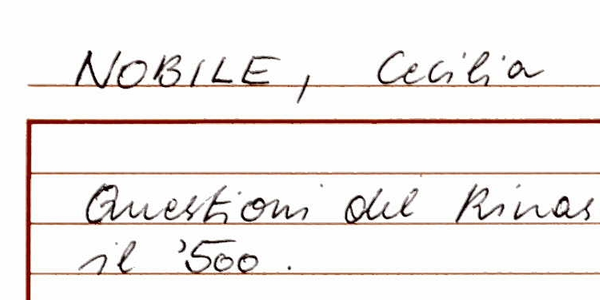 NOBILE, Cecilia
Questioni del Rinas
il '500.